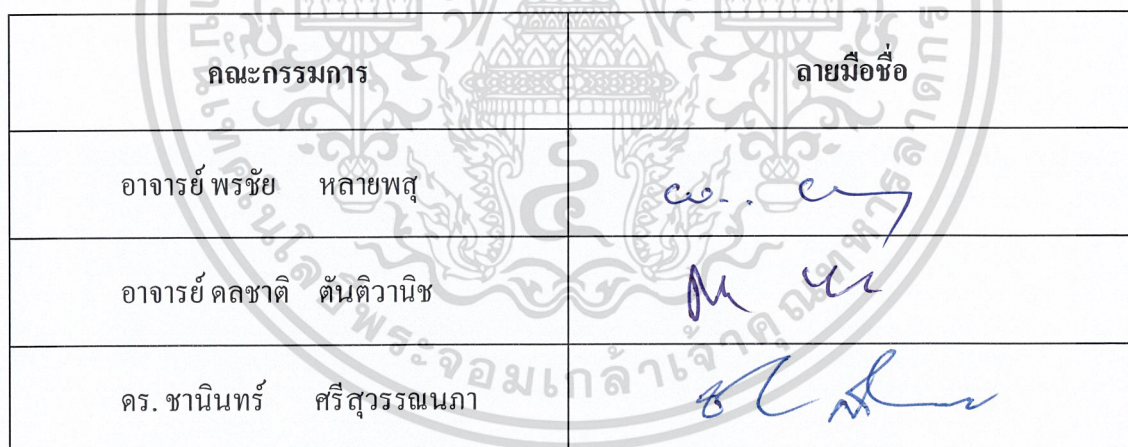 คณะกรรมการ ลายมือชื่อ
อาจารย์ พรชัย หลายพสุ
อาจารย์ ดลชาติ ตันติวานิช
ดร. ชานินทร์ ศรีสุวรรณนภา
พระจอมเกล้าเจ้าคุณทหารลาดกร